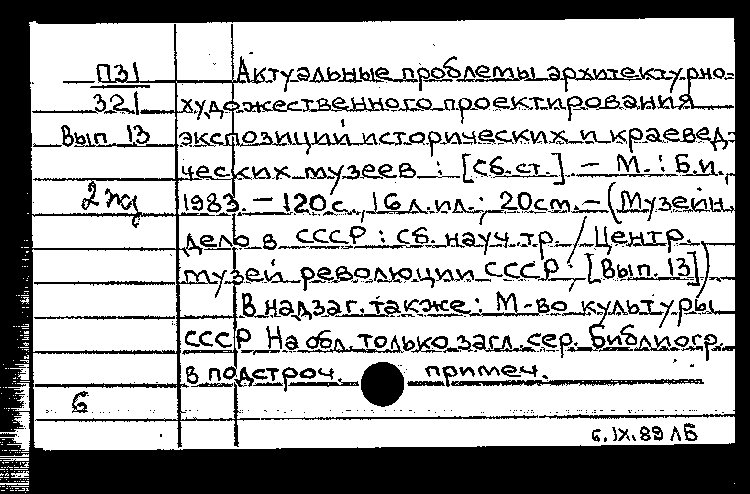 П31 Актуальные проблемы архитектурно-
321 художественного проектирования
Вып. 13 экспозиций исторических и краевед-
ческих музеев : [Сб. ст.] – М. : Б.и.,
1983. – 120 с., 16 л. ил.; 20 см. – (Музейн.
дело в СССР : Сб. науч. тр. / Центр.
музей революции СССР; [Вып. 13])
В надзаг. также: М-во культуры
СССР На обл. только загл. сер. Библиогр.
в подстроч. примеч.
6
6.IX.89 ЛБ